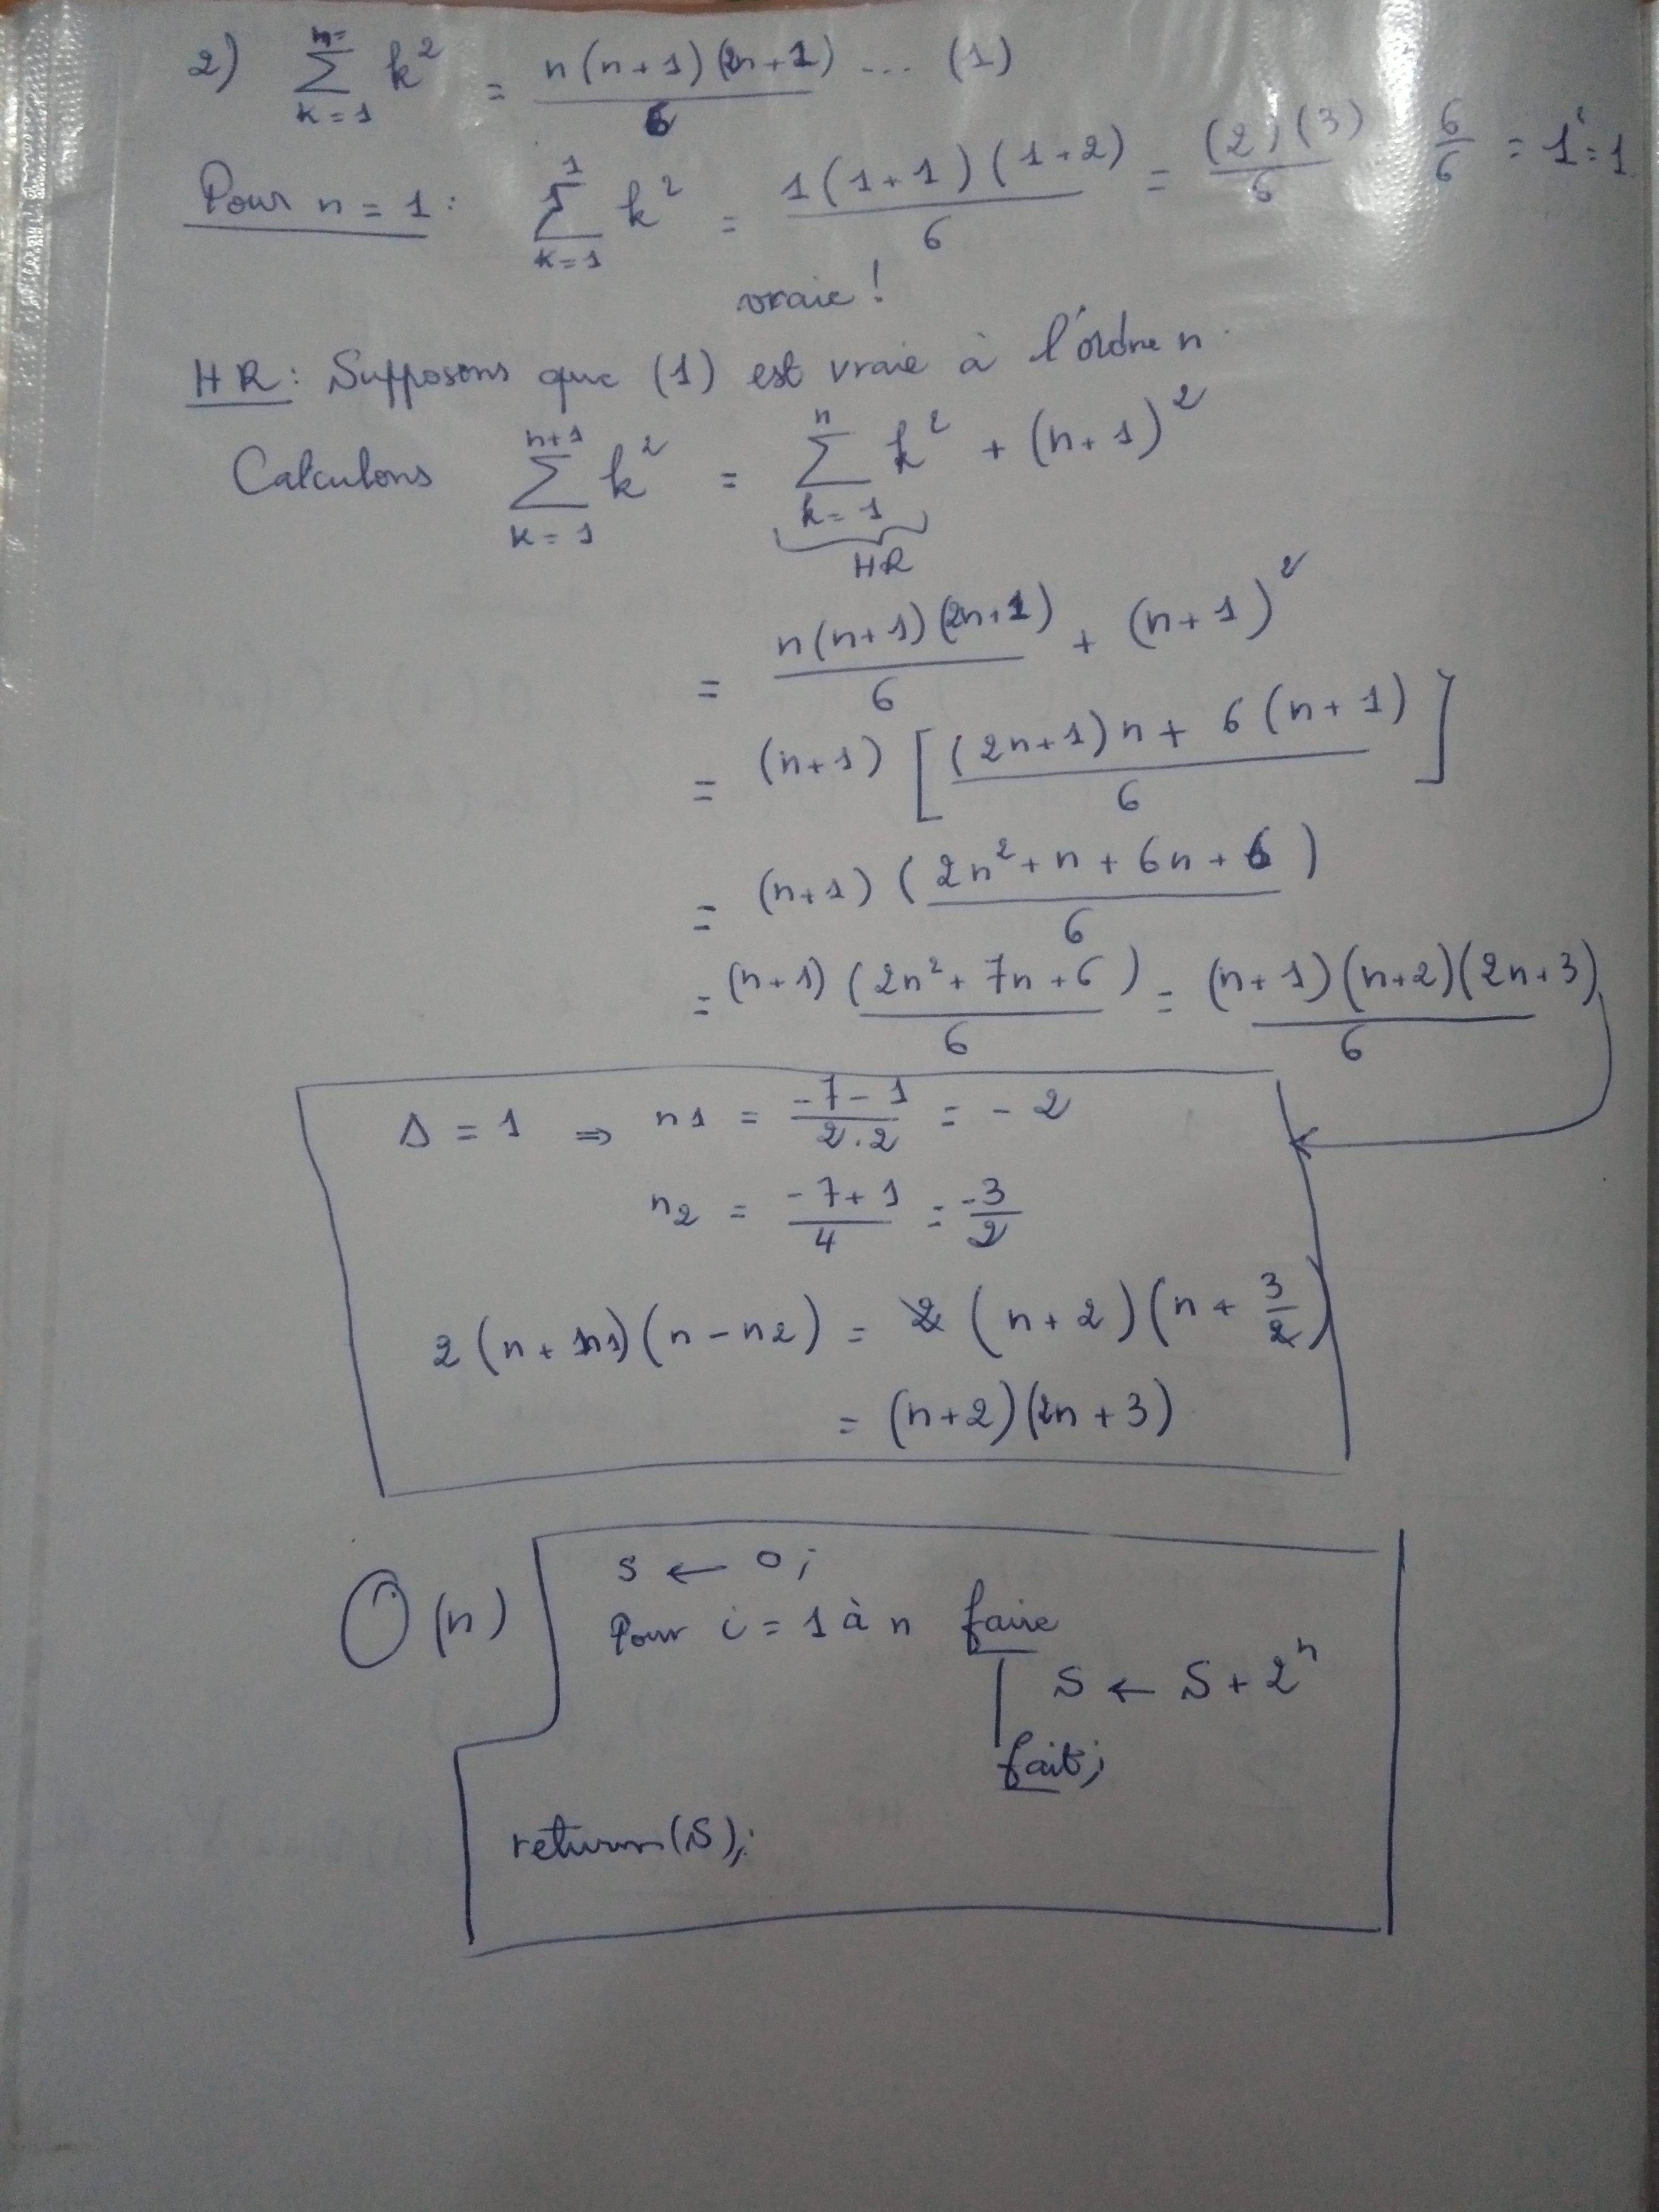 2) \sum_{k=1}^{n} k^2 = \frac{n(n+1)(2n+1)}{6} ... (1)
Pour n = 1 : \sum_{k=1}^{1} k^2 = \frac{1(1+1)(1+2)}{6} = \frac{(2)(3)}{6} \frac{6}{6} = 1 = 1
vraie !
HR : Supposons que (1) est vraie à l'ordre n.
Calculons \sum_{k=1}^{n+1} k^2 = \sum_{k=1}^{n} k^2 + (n+1)^2
HR
= \frac{n(n+1)(2n+1)}{6} + (n+1)^2
= (n+1) [\frac{(2n+1)n + 6(n+1)}{6}]
= (n+1) (\frac{2n^2 + n + 6n + 6}{6})
= (n+1) (\frac{2n^2 + 7n + 6}{6}) = \frac{(n+1)(n+2)(2n+3)}{6}
Δ = 1 ⇒ n1 = \frac{-7-1}{2.2} = -2
n2 = \frac{-7+1}{4} = \frac{-3}{2}
2(n + n1)(n - n2) = 2(n+2)(n + \frac{3}{2})
= (n+2)(2n+3)
O(n)
S ← 0;
Pour i = 1 à n faire
S ← S + 2^n
fait;
return(S);